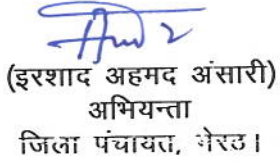 (इरशाद अहमद अंसारी)
अभियन्ता
जिला पंचायत, मेरठ।